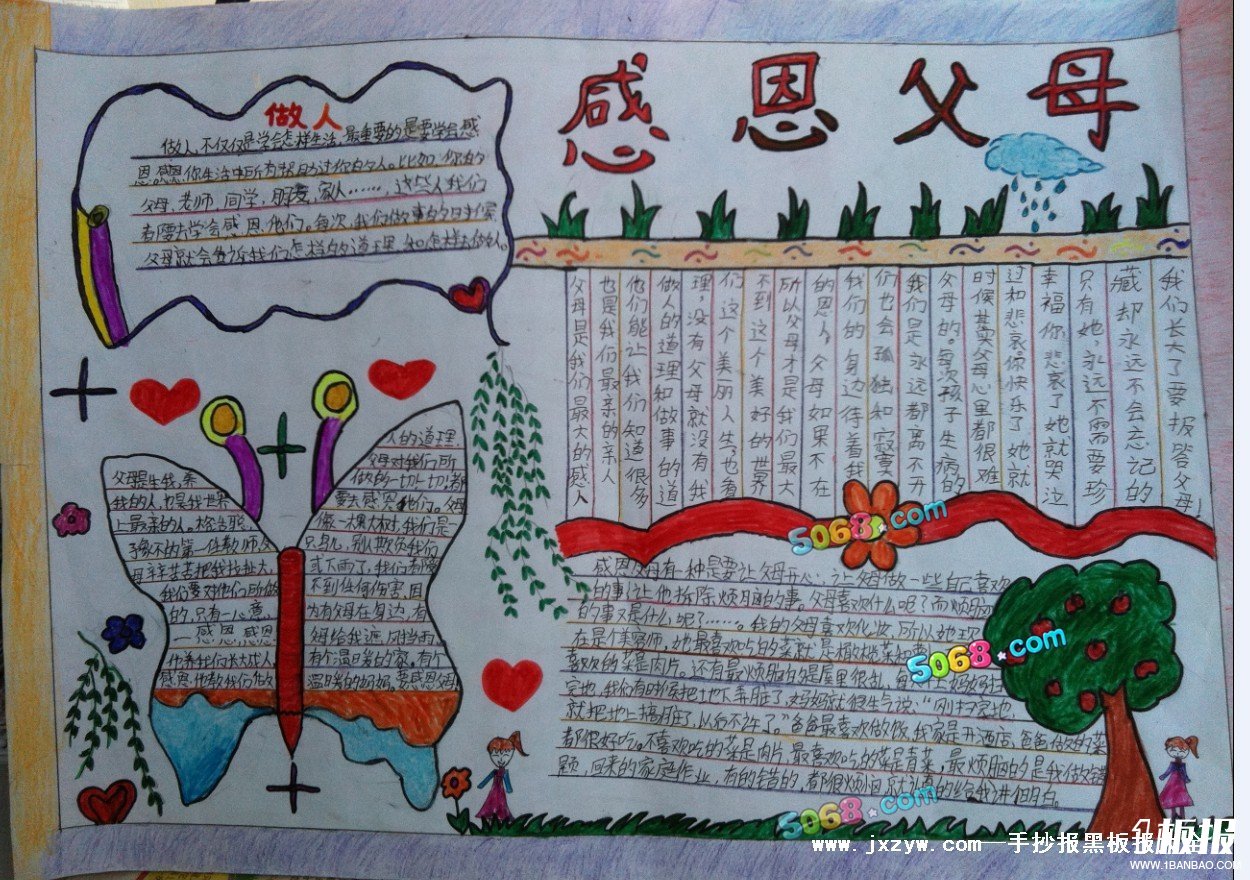 感恩父母
做人
做人,不仅仅是学会怎样生活,最重要的是要学会感
恩,感恩你生活中所有帮助过你的人。比如:你的
父母,老师,同学,朋友,家人……,这些人我们
都要去学会感恩他们。每次,我们做事的时候
父母就会告诉我们怎样的道理,和怎样去做人。
我们长大了要报答父母!
藏却永远不会忘记的
只有她,永远不需要珍
幸福你悲哀了她就哭泣
过和悲哀你快乐了她就
时候其实父母心里都很难
父母的。每次孩子生病的
我们是永远都离不开
们也会孤独和寂寞
我们的身边待着我
的恩人,父母如果不在
所以父母才是我们最大
不到这个美好的世界
们这个美丽人生,也看
理,没有父母就没有我
做人的道理和做事的道
他们能让我们知道很多
也是我们最亲的亲人
父母是我们最大的感人
父母是生我,养
我的人,也是我世界
上最亲的人。
的第一任教师,父
母辛辛苦苦把我扶大,
我们要对他们所做
的,只有一心意
—感恩感恩
他养我们长大成人,
感恩他教我们作
人的道理
父母对我们所
做的一切一切都
要去感恩他们。父母
像一棵大树,我们是一
只鸟,别人欺负我们
或下雨了,我们都
不到任何伤害,因
为有父母在身边,有
母给我遮风挡雨,
有个温暖的家。有个
温暖的妈妈。要感恩
感恩父母有一种是要让父母开心,让父母做一些自己喜欢
的事,让他拆除烦脑的事。父母喜欢什么呢?而烦脑
的事又是什么呢?……。我的父母喜欢化妆,所以她现
在是个美容师,她最喜欢吃的菜就是
喜欢的菜是肉片。还有最烦脑的是屋里很乱,每天
完地,我们有时候把地下弄脏了,妈妈就很生气说:“刚扫完地,
就把地上搞脏了,以后不许了。”爸爸最喜欢做饭,我家是开酒店,爸爸做的菜
都很好吃。不喜欢吃的菜是肉片,最喜欢吃的菜是青菜,最烦脑的是我做错
题,回来的家庭作业,有的错的,都很烦恼的给我讲明白。
5068.com
5068.com
5068.com
板报
www.jxzyw.com—手抄报黑板报大全
WWW.1BANBAO.COM